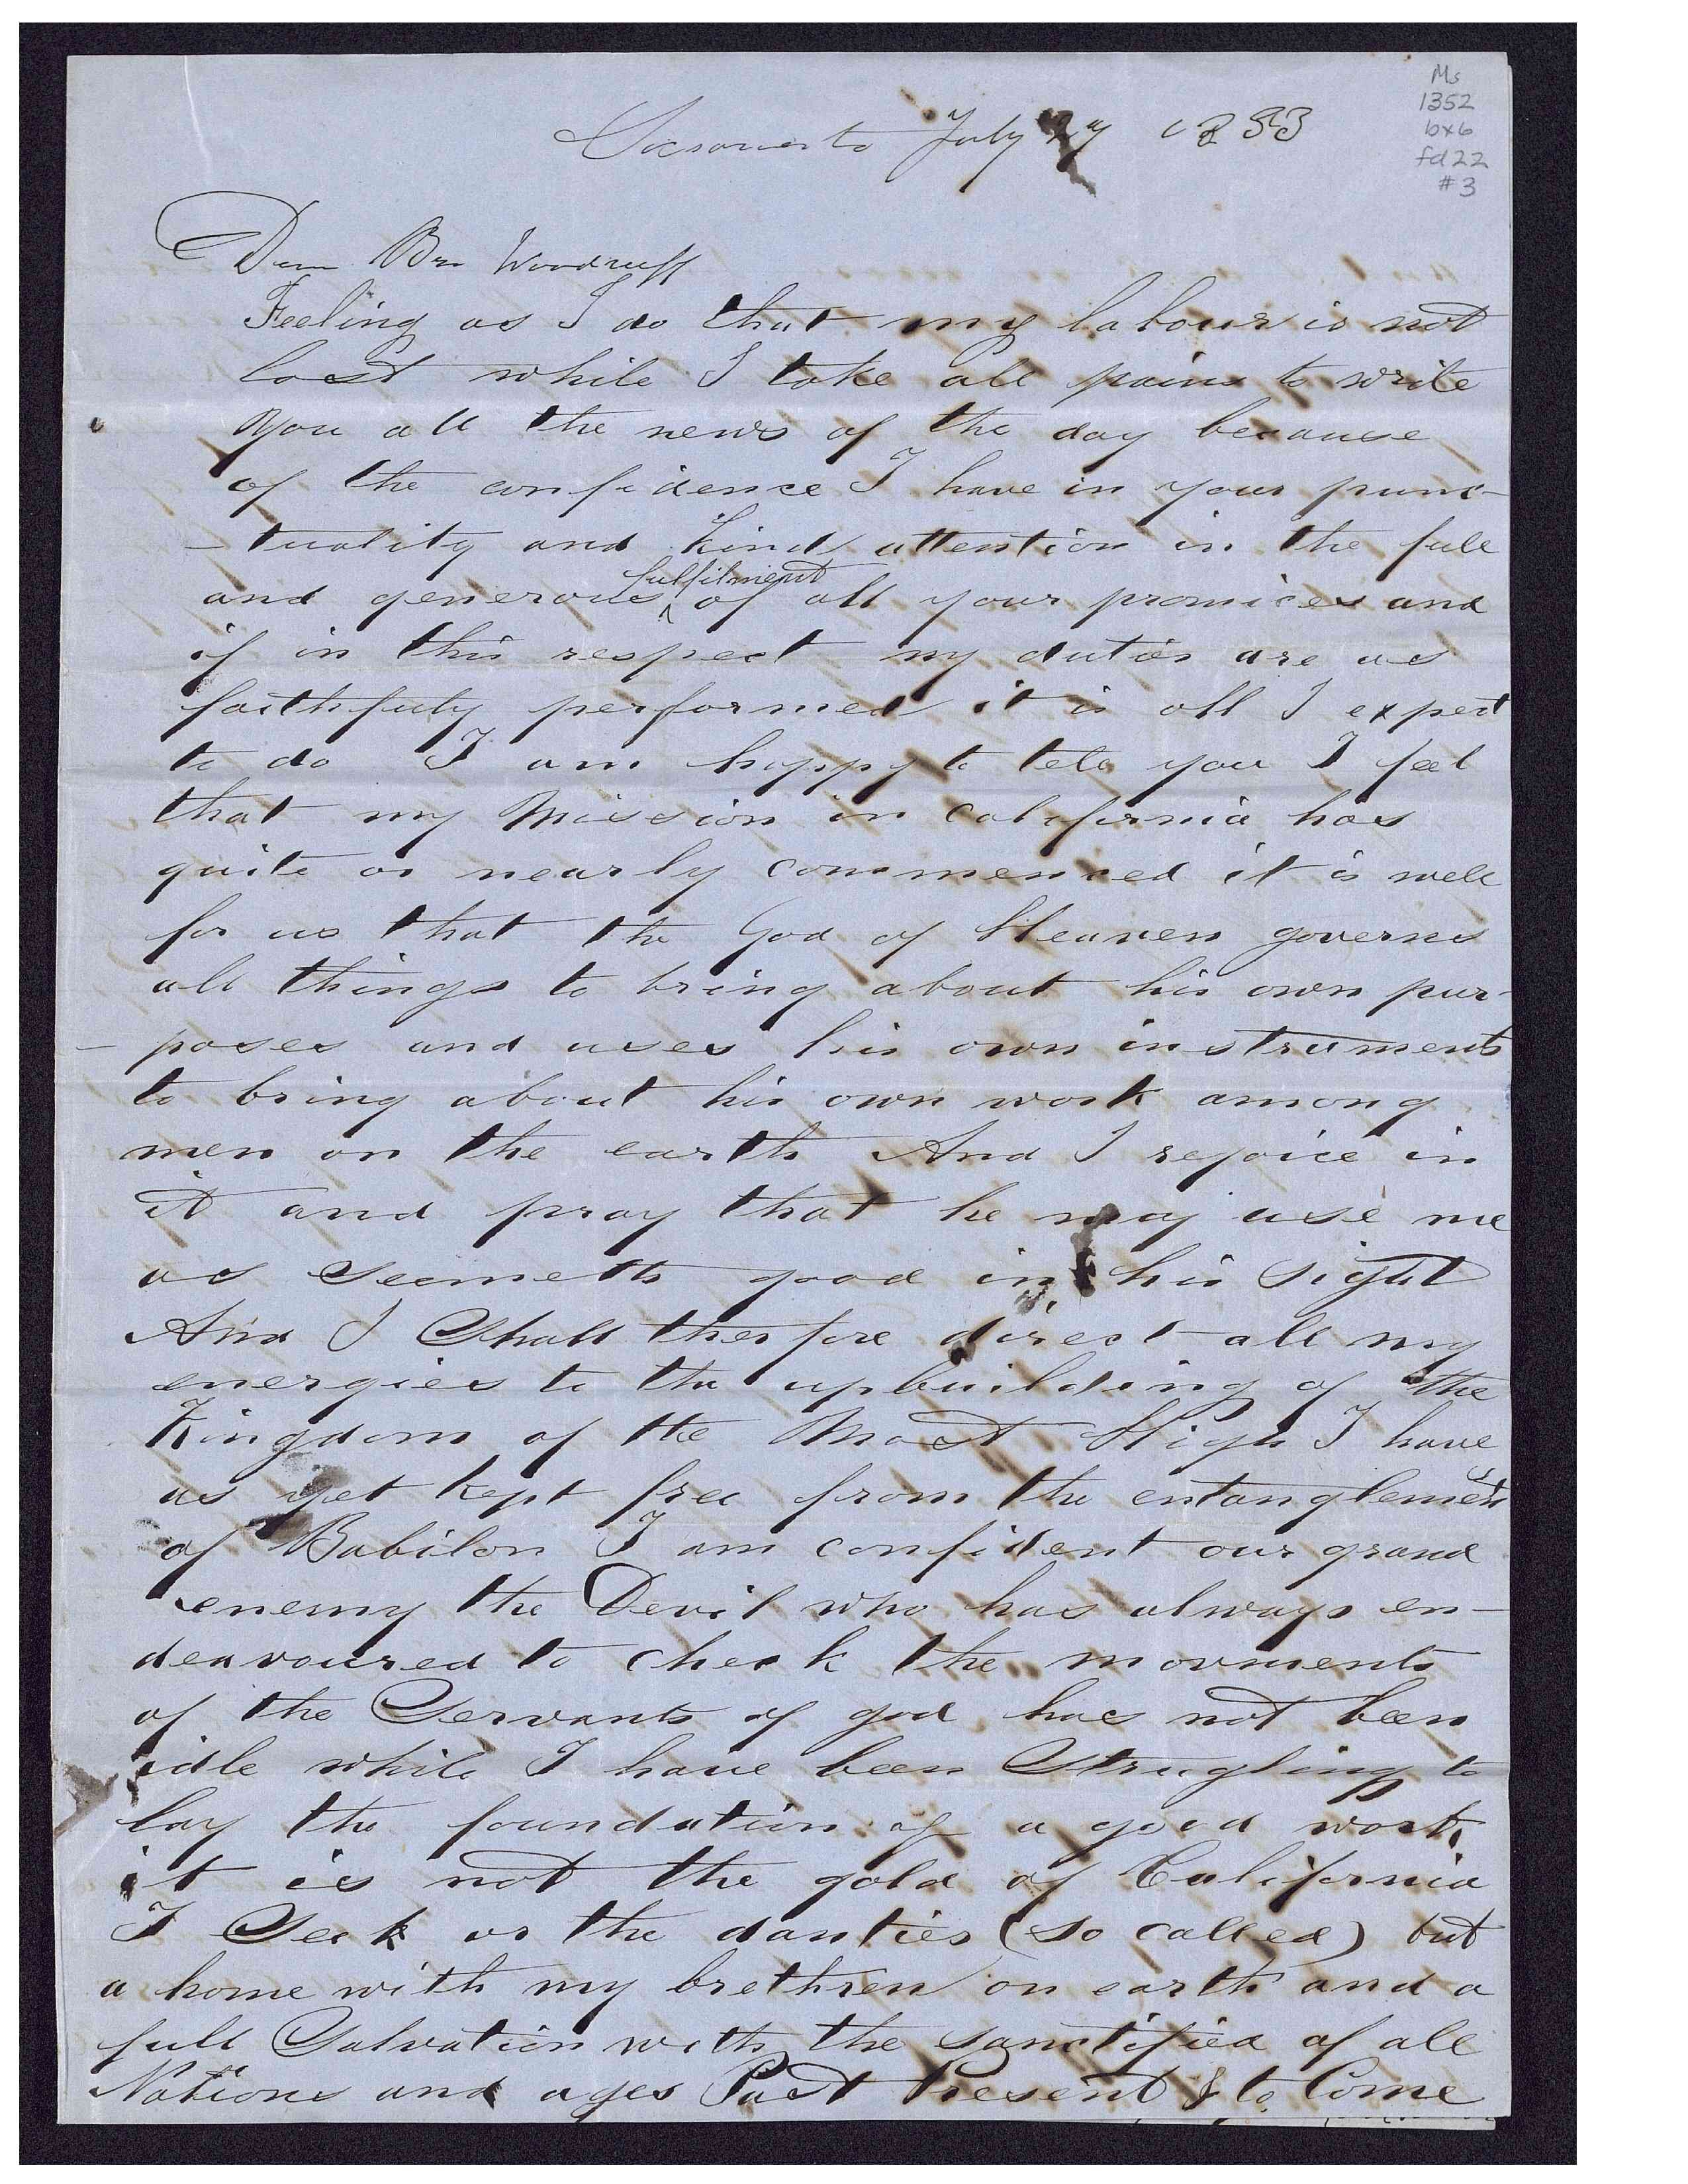 Ms
1352
bx6
fd 22
#3
Sacramento July 27 1853
Dear Bro Woodruff
Feeling as I do that my labour is not
lost while I take all pains to write
you all the news of the day because
of the confidence I have in your punc-
-tuality and kind attention in the full
fulfilment
and generous ^ of all your promices and
if in this respect my duties are as
faithfuly performed it is all I expect
to do I am happy to tell you I feel
that my Mission in California has
quite or nearly commenced it is well
for us that the God of Heaven governs
all things to bring about his own pur-
-poses and uses his own instruments
to bring about his own work among
men on the earth And I rejoice in
it and pray that he may use me
as Seemeth good in his Sight
And I Shall therfore direct all my
energies to the upbuilding of the
Kingdom of the Most High I have
as yet kept free from the entanglements
of Babilon I am confident our grand
enemy the Devil who has always en-
deavoured to check the movments
of the Servants of god has not been
idle while I have been Strugling to
lay the foundation of a good work
it is not the gold of California
I Seek or the danties (so called) but
a home with my brethren on earth and a
full Salvation with the Sanctified of all
Nations and ages Past Present & to Come